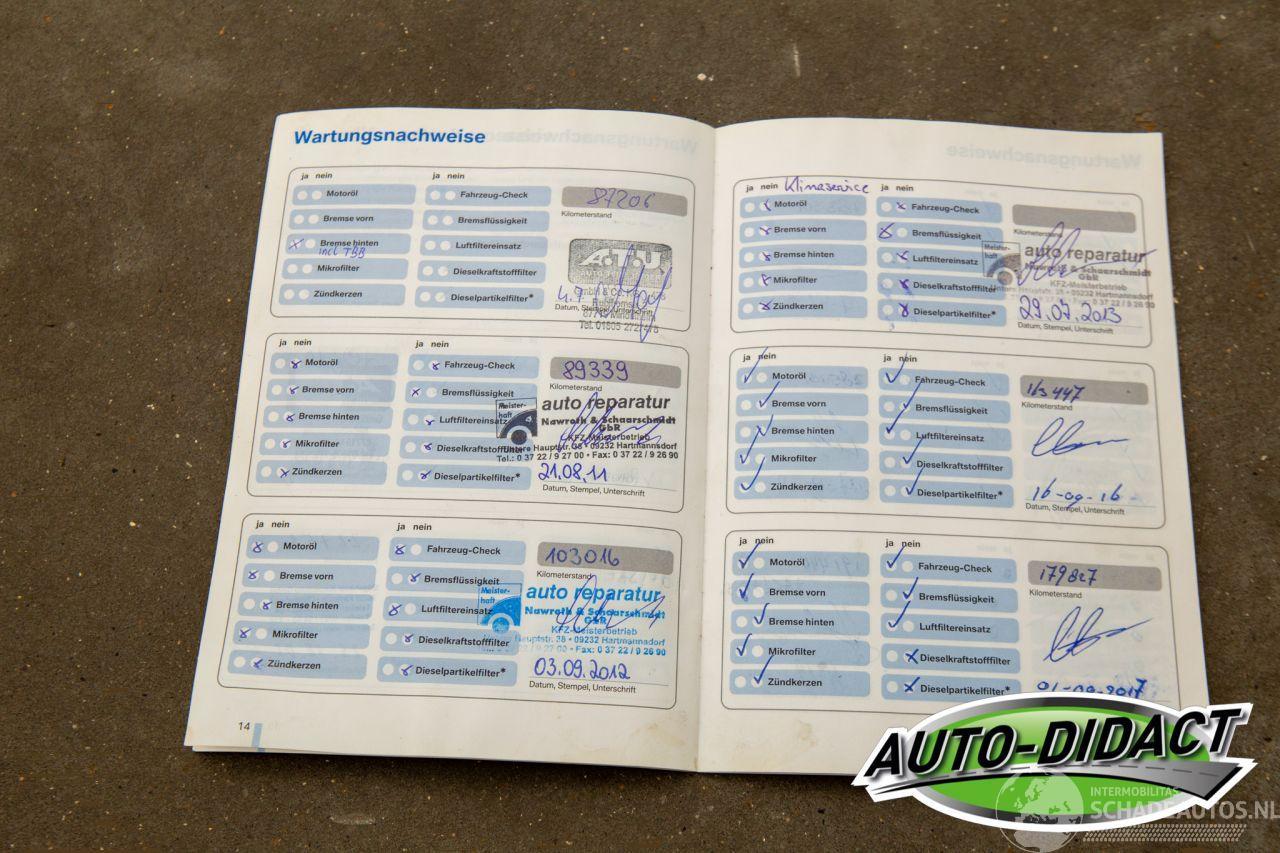 Wartungsnachweise
ja nein
ja nein
Motoröl
Fahrzeug-Check
87206
Bremse vorn
Bremsflüssigkeit
Kilometerstand
Bremse hinten
incl TBB
Luftfiltereinsatz
A.T.U
Mikrofilter
Dieselkraftstofffilter
Zündkerzen
Dieselpartikelfilter*
Datum, Stempel, Unterschrift
Tel. 01805 2727476
ja nein
ja nein
Motoröl
Fahrzeug-Check
89339
Kilometerstand
Bremse vorn
Bremsflüssigkeit
Meister-
haft
auto reparatur
Nawroth & Schaarschmidt
GbR
Bremse hinten
Luftfiltereinsatz
KFZ-Meisterbetrieb
Mikrofilter
Dieselkraftstofffilter
Untere Hauptstr. 38 • 09232 Hartmannsdorf
Tel.: 0 37 22 / 9 27 00 • Fax: 0 37 22 / 9 26 90
Zündkerzen
Dieselpartikelfilter*
21.08.11
Datum, Stempel, Unterschrift
ja nein
ja nein
Motoröl
Fahrzeug-Check
103016
Kilometerstand
Bremse vorn
Bremsflüssigkeit
Meister-
haft
auto reparatur
Nawroth & Schaarschmidt
GbR
Bremse hinten
Luftfiltereinsatz
KFZ-Meisterbetrieb
Mikrofilter
Dieselkraftstofffilter
Hauptstr. 38 • 09232 Hartmannsdorf
• Fax: 0 37 22 / 9 26 90
Zündkerzen
Dieselpartikelfilter*
03.09.2012
Datum, Stempel, Unterschrift
14
ja nein Klimaservice
ja nein
Motoröl
Fahrzeug-Check
Bremse vorn
Bremsflüssigkeit
Kilometerstand
Meister-
haft
auto reparatur
Nawroth & Schaarschmidt
GbR
Bremse hinten
Luftfiltereinsatz
KFZ-Meisterbetrieb
Mikrofilter
Dieselkraftstofffilter
Untere Hauptstr. 38 • 09232 Hartmannsdorf
Tel.: 0 37 22 / 9 27 00 • Fax: 0 37 22 / 9 26 90
Zündkerzen
Dieselpartikelfilter*
29.07.2013
Datum, Stempel, Unterschrift
ja nein
ja nein
Motoröl
Fahrzeug-Check
Kilometerstand
Bremse vorn
Bremsflüssigkeit
Bremse hinten
Luftfiltereinsatz
Mikrofilter
Dieselkraftstofffilter
Zündkerzen
Dieselpartikelfilter*
16-09-16
Datum, Stempel, Unterschrift
ja nein
ja nein
Motoröl
Fahrzeug-Check
179827
Kilometerstand
Bremse vorn
Bremsflüssigkeit
Bremse hinten
Luftfiltereinsatz
Mikrofilter
Dieselkraftstofffilter
Zündkerzen
Dieselpartikelfilter*
01-09-2017
AUTO-DIDACT
INTERMOBILITAS
SCHADEAUTOS.NL